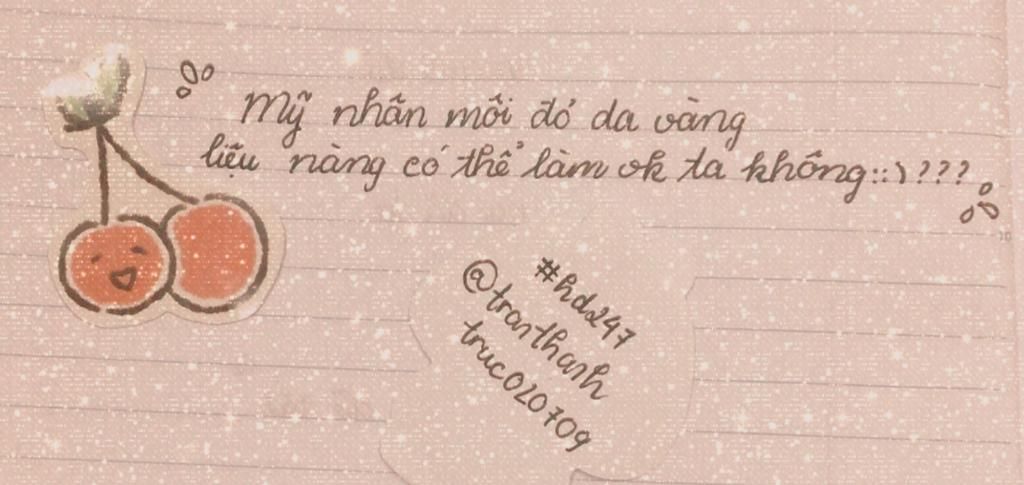 Mỹ nhân môi đỏ da vàng
liệu nàng có thể làm ok ta không::)???
#hdt247
@tranthanh
truc020709